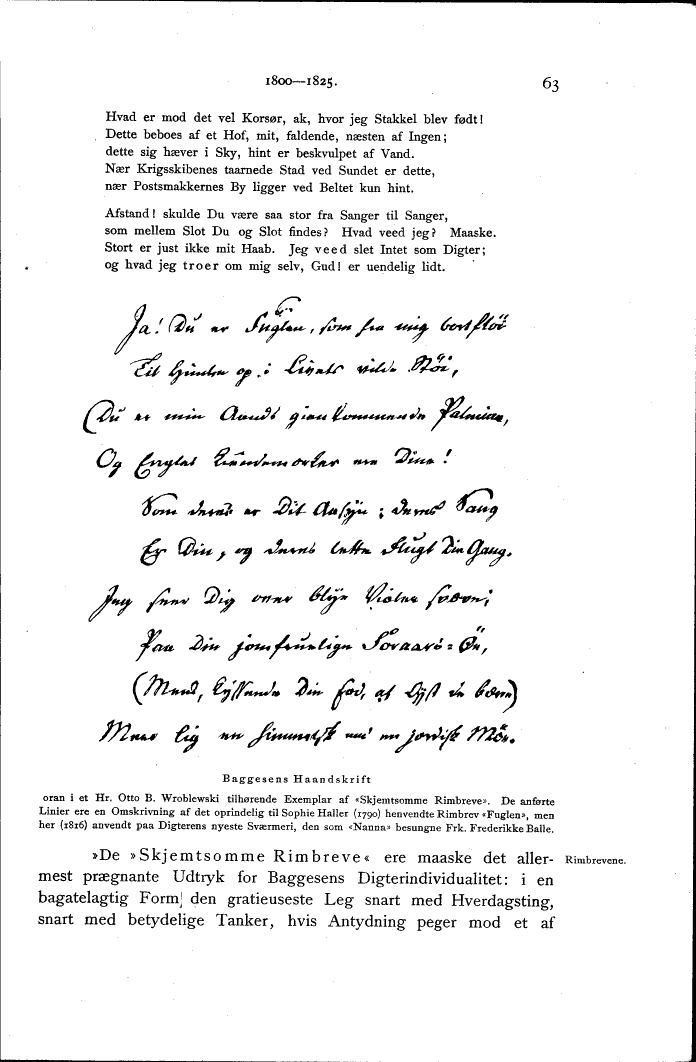 1800—1825.
63
Hvad er mod det vel Korsør, ak, hvor jeg Stakkel blev født!
Dette beboes af et Hof, mit, faldende, næsten af Ingen;
dette sig hæver i Sky, hint er beskvulpet af Vand.
Nær Krigsskibenes taarnede Stad ved Sundet er dette,
nær Postsmakkernes By ligger ved Beltet kun hint.
Afstand! skulde Du være saa stor fra Sanger til Sanger,
som mellem Slot Du og Slot findes? Hvad veed jeg? Maaske.
Stort er just ikke mit Haab. Jeg veed slet Intet som Digter;
og hvad jeg troer om mig selv, Gud! er uendelig lidt.
Ja! Du er Fuglen, som fra mig bortfløi
Til Himlen op i Livets vilde Støi,
(Du er min Aands gienkommende Palmine,
Og Engles ere Dine!
Som deres er Dit Ansyn; deres Sang
Er Din, og deres lette Flugt Din Gang.
Jeg seer Dig over blye Violer svæve;
Paa Din jomfruelige Foraars-Øe,
(Mens, kyssende Din Fod, af Lyst de bæve)
Meer lig en himmelsk end en jordisk Møe.
Baggesens Haandskrift
oran i et Hr. Otto B. Wroblewski tilhørende Exemplar af «Skjemtsomme Rimbreve». De anførte
Linier ere en Omskrivning af det oprindelig til Sophie Haller (1790) henvendte Rimbrev «Fuglen», men
her (1816) anvendt paa Digterens nyeste Sværmeri, den som «Nanna» besungne Frk. Frederikke Balle.
»De »Skjemtsomme Rimbreve« ere maaske det aller-
Rimbrevene.
mest prægnante Udtryk for Baggesens Digterindividualitet: i en
bagatelagtig Form den gratieuseste Leg snart med Hverdagsting,
snart med betydelige Tanker, hvis Antydning peger mod et af